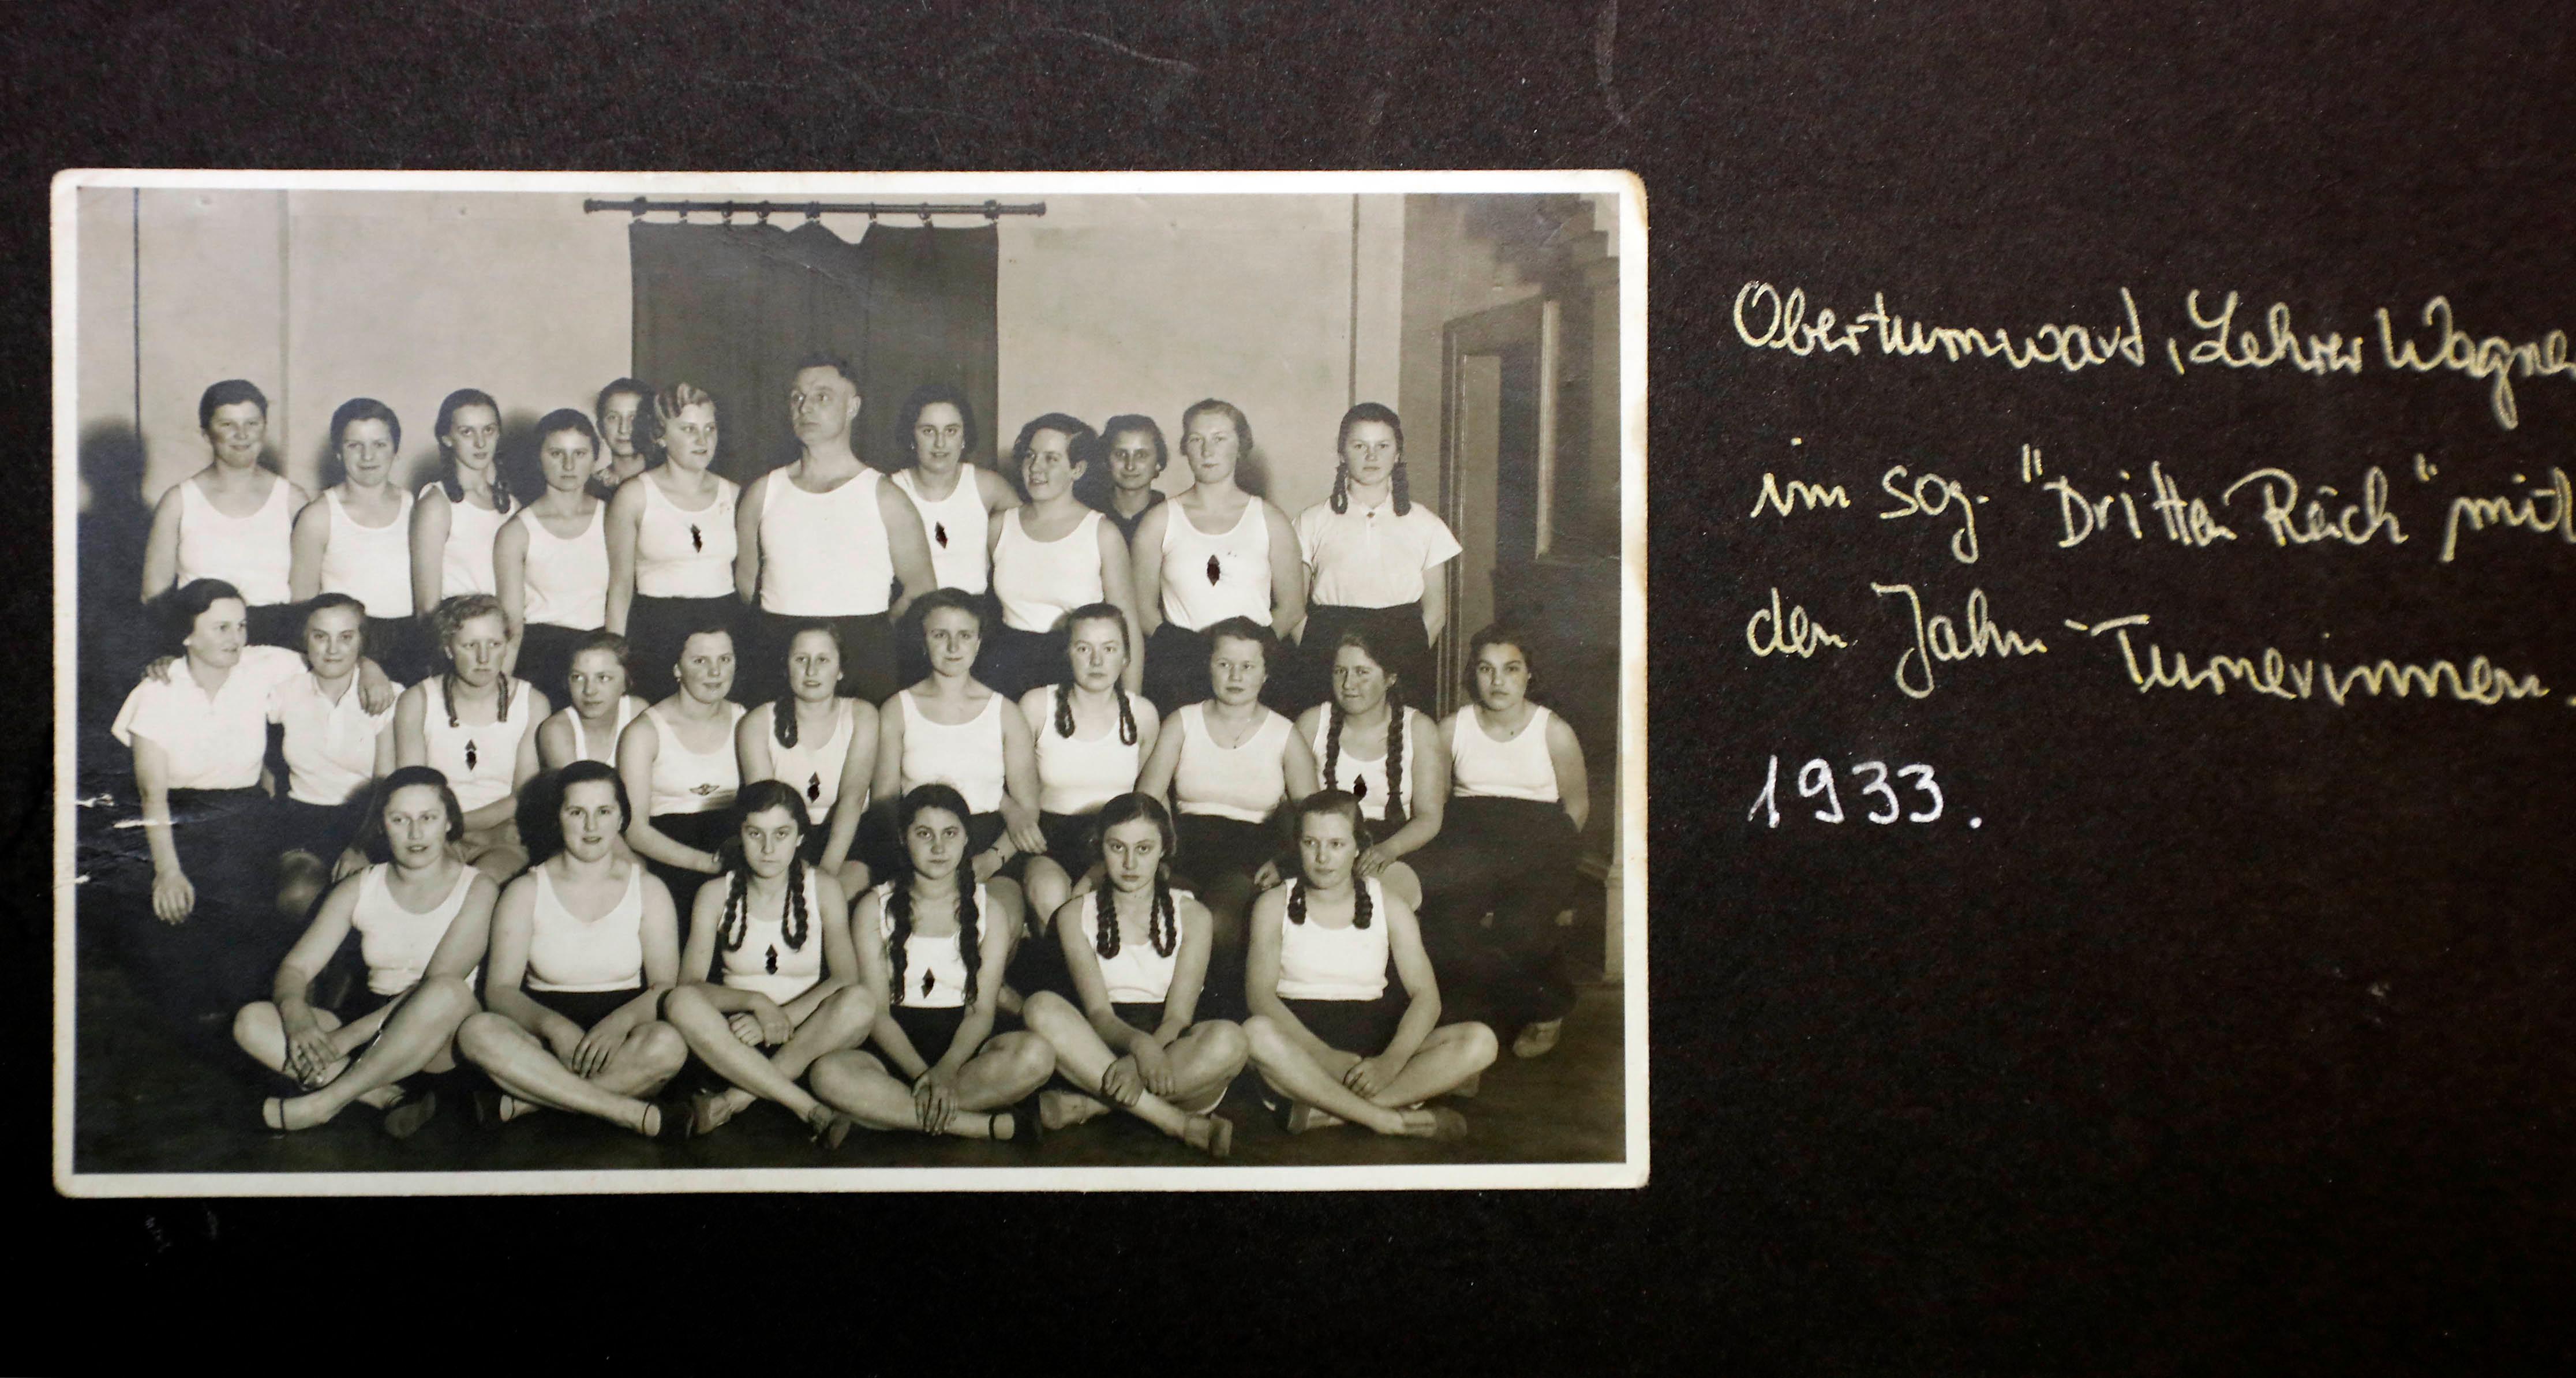 Oberturnwart, Lehrer Wagne
im sog. "Dritten Reich" mit
den Jahn-Turnerinnen.
1933.